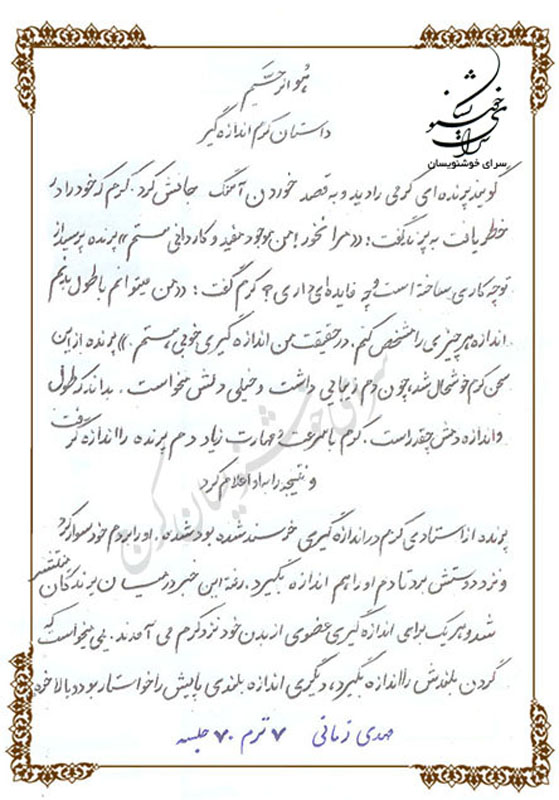 سرای خوشنویسان
هوالرحیم
داستان کرم اندازه گیر
گویند پرنده ای کرمی را دید و به قصد خوردن آهنگ جانش کرد. کرم که خود را در
خطر یافت به پرنده گفت: «مرا نخور! من موجود مفید و کاردانی هستم» پرنده پرسید از
تو چه کاری ساخته است و چه فایده ای داری؟ کرم گفت: «من میتوانم با طول بدنم
اندازه هر چیزی را مشخص کنم. در حقیقت من اندازه گیری خوبی هستم.» پرنده از این
سخن کرم خوشحال شد، چون دم زیبایی داشت و خیلی دلش میخواست. بداند که طول
و اندازه دمش چقدر است. کرم با سرعت و مهارت زیاد دم پرنده را اندازه گرفت
و نتیجه را به او اعلام کرد
پرنده از استادی کرم در اندازه گیری خرسند شده بود شده. او را بر دم خود سوار کرد
و نزد دوستش برد تا دم او را هم اندازه بگیرد. رفته این خبر در میان پرندگان منتشر
شد و هر یک برای اندازه گیری عضوی از بدن خود نزد کرم می آمدند. یکی میخواست که
گردن بلندش را اندازه بگیرد، دیگری اندازه بلندی پایش را خواستار بود و بالاخره
مهدی زمانی ۷ ترم ۷۰ جلسه
سرای خوشنویسان